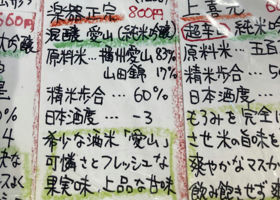 560円
大吟醸
楽器正宗 800円
混醸 愛山 (純米吟醸)
原料米…播州愛山 83%
山田錦 17%
精米歩合 … 60%
日本酒度 … -3
希少な酒米「愛山」
可憐さとフレッシュな
果実味 上品な甘味
上喜元
超辛 純米
原料米…五
精米歩合…
日本酒度…
もろみを完全に
させ米の旨味を
爽やかなマスカ
飲み飽きせず